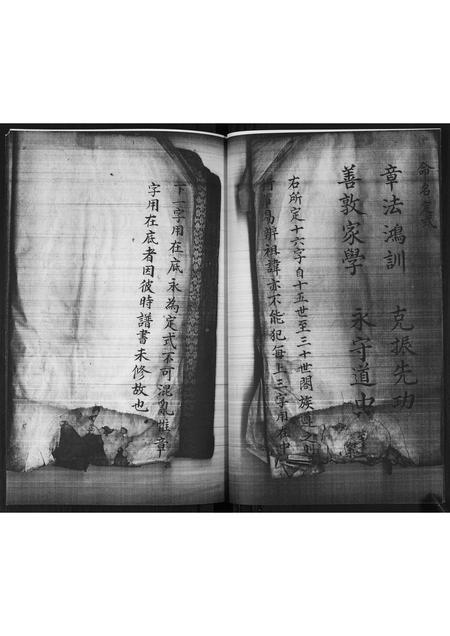 命名定式
章法鴻訓 克振先功
善敦家學 永守道中
右所定十六字自十五世至三十世闔族遵之
易辨祖諱亦不能犯每上三字用在中
下一字用在底永為定式不可混亂惟章
字用在底者因彼時譜書未修故也